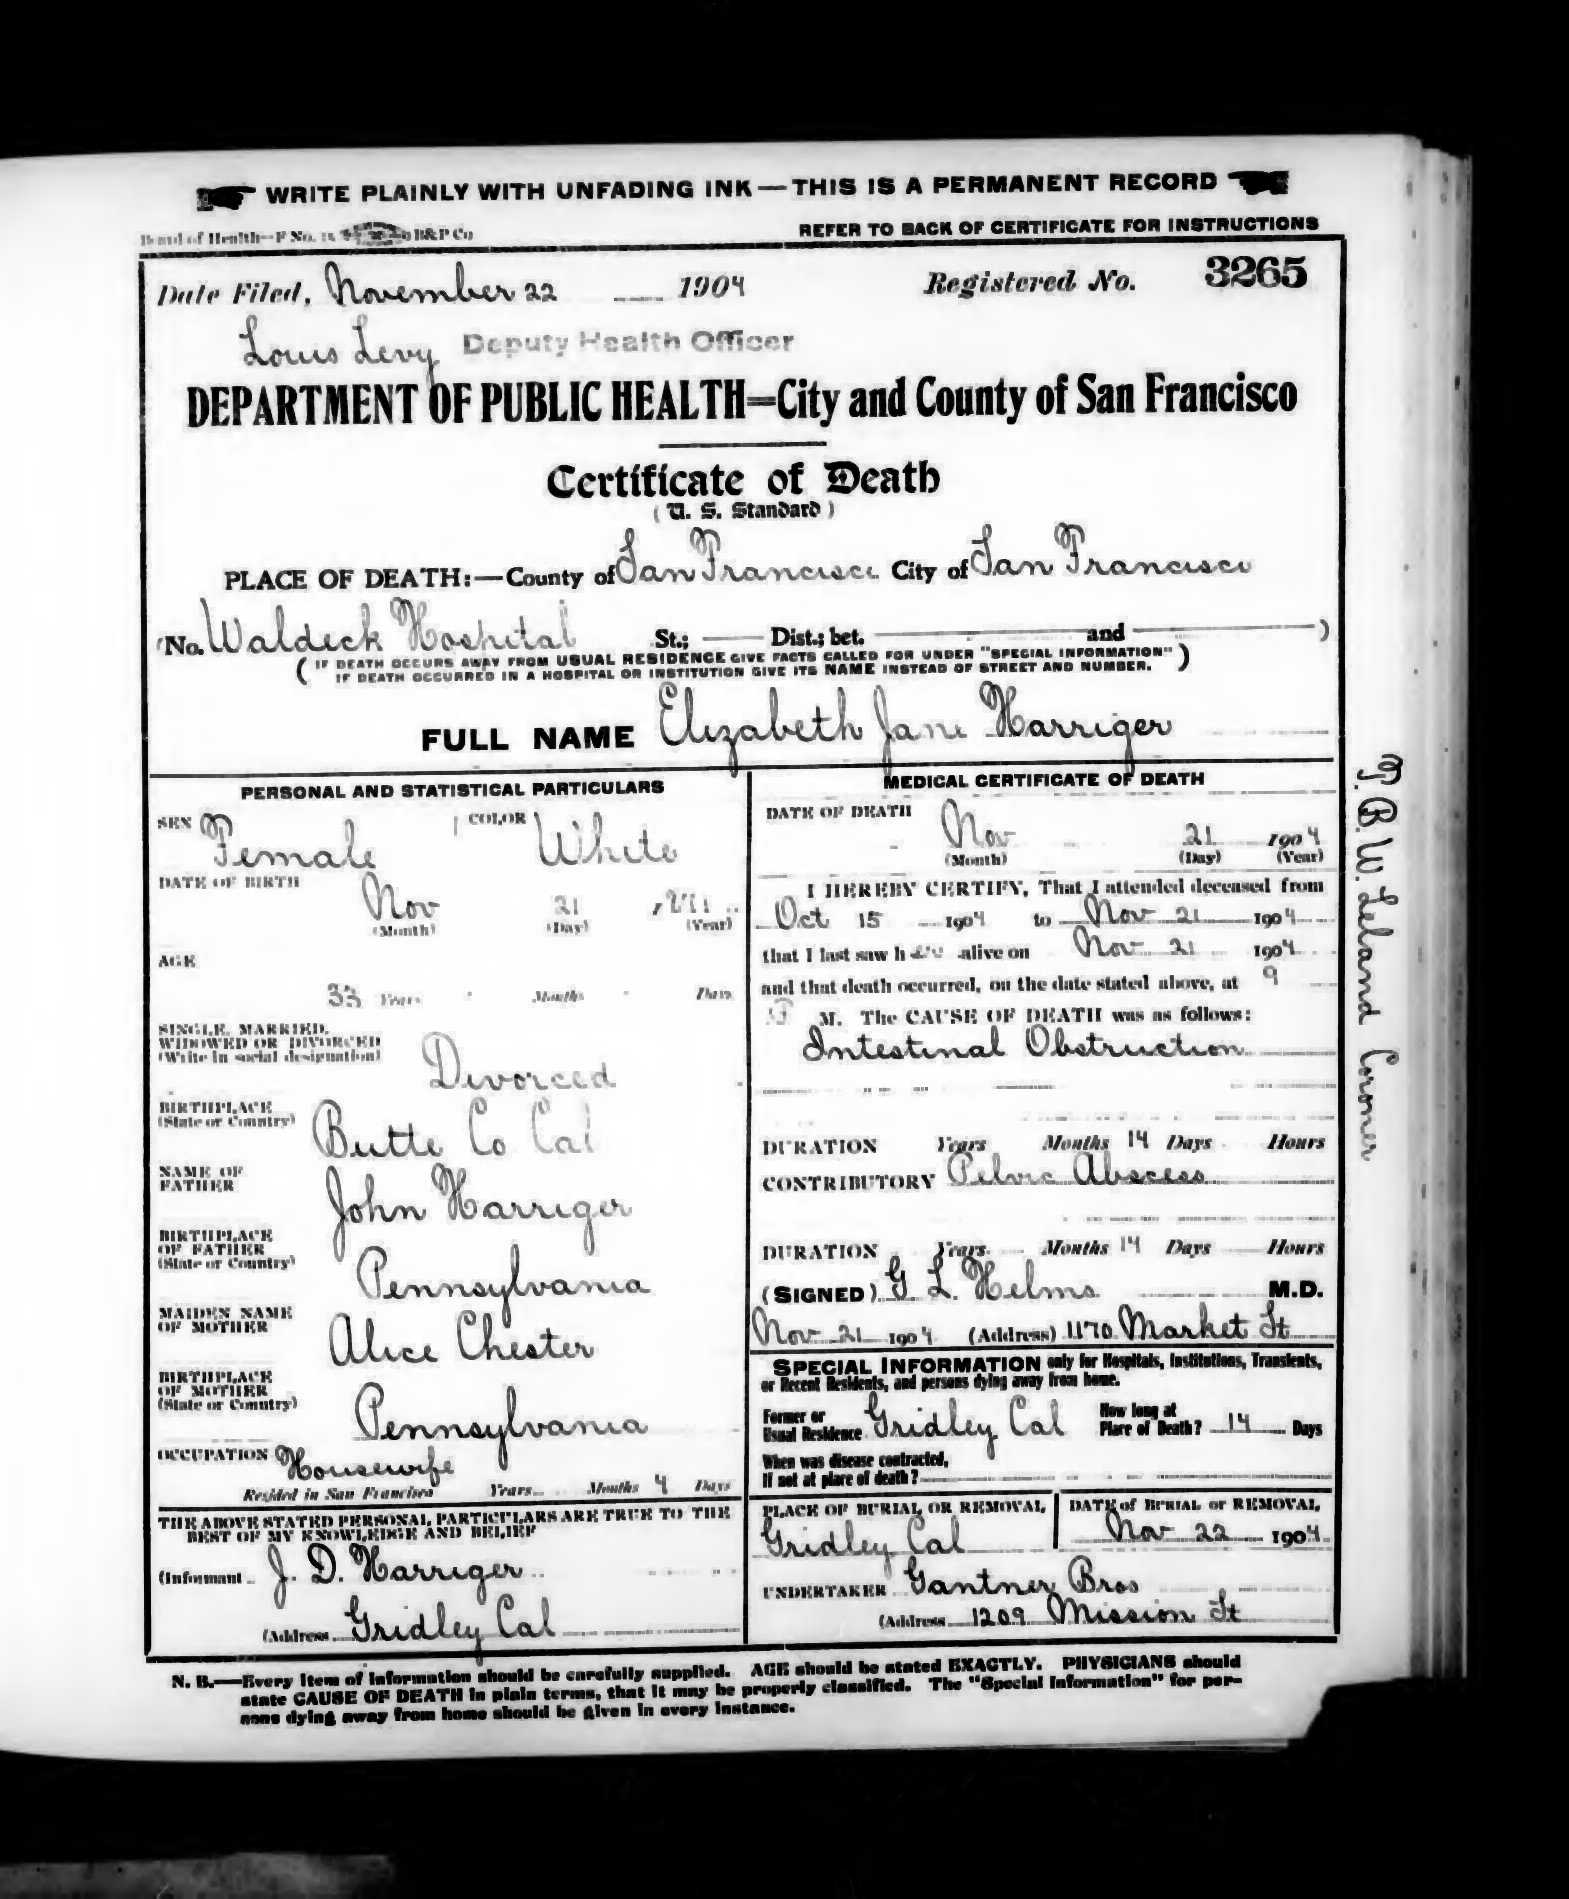 WRITE PLAINLY WITH UNFADING INK — THIS IS A PERMANENT RECORD
Board of Health—F No. B&P Co
REFER TO BACK OF CERTIFICATE FOR INSTRUCTIONS
Date Filed, November 22 1904 Registered No. 3265
Louis Levy Deputy Health Officer
DEPARTMENT OF PUBLIC HEALTH=City and County of San Francisco
Certificate of Death
(U. S. Standard)
PLACE OF DEATH:—County of San Francisco City of San Francisco
(No. Waldeck Hospital St.; Dist.; bet. and )
(IF DEATH OCCURS AWAY FROM USUAL RESIDENCE GIVE FACTS CALLED FOR UNDER "SPECIAL INFORMATION"
IF DEATH OCCURRED IN A HOSPITAL OR INSTITUTION GIVE ITS NAME INSTEAD OF STREET AND NUMBER.)
FULL NAME Elizabeth Jane Harriger
PERSONAL AND STATISTICAL PARTICULARS
SEX Female COLOR White
DATE OF BIRTH
Nov 21
(Month) (Day) (Year)
AGE
33 Years Months Days
SINGLE, MARRIED,
WIDOWED OR DIVORCED
(Write in social designation)
Divorced
BIRTHPLACE
(State or Country)
Butte Co Cal
NAME OF
FATHER
John Harriger
BIRTHPLACE
OF FATHER
(State or Country)
Pennsylvania
MAIDEN NAME
OF MOTHER
Alice Chester
BIRTHPLACE
OF MOTHER
(State or Country)
Pennsylvania
OCCUPATION Housewife
Resided in San Francisco Years Months 4 Days
THE ABOVE STATED PERSONAL PARTICULARS ARE TRUE TO THE
BEST OF MY KNOWLEDGE AND BELIEF
(Informant J. D. Harriger
(Address Gridley Cal
MEDICAL CERTIFICATE OF DEATH
DATE OF DEATH
Nov 21 1904
(Month) (Day) (Year)
I HEREBY CERTIFY, That I attended deceased from
Oct 15 1904 to Nov 21 1904
that I last saw her alive on Nov 21 1904
and that death occurred, on the date stated above, at 9
P M. The CAUSE OF DEATH was as follows:
Intestinal Obstruction
DURATION Years Months 14 Days Hours
CONTRIBUTORY Pelvic Abscess
DURATION Years Months 14 Days Hours
(SIGNED) G. L. Helms M.D.
Nov 21 1904 (Address) 1170 Market St
SPECIAL INFORMATION only for Hospitals, Institutions, Transients,
or Recent Residents, and persons dying away from home.
Former or
Usual Residence Gridley Cal
How long at
Place of Death? 14 Days
When was disease contracted,
If not at place of death?
PLACE OF BURIAL OR REMOVAL
Gridley Cal
DATE of BURIAL or REMOVAL
Nov 22 1904
UNDERTAKER Gantner Bros
(Address 1209 Mission St
T. B. W. Leland Coroner
N. B.—Every item of information should be carefully supplied. AGE should be stated EXACTLY. PHYSICIANS should
state CAUSE OF DEATH in plain terms, that it may be properly classified. The "Special Information" for per-
sons dying away from home should be given in every instance.